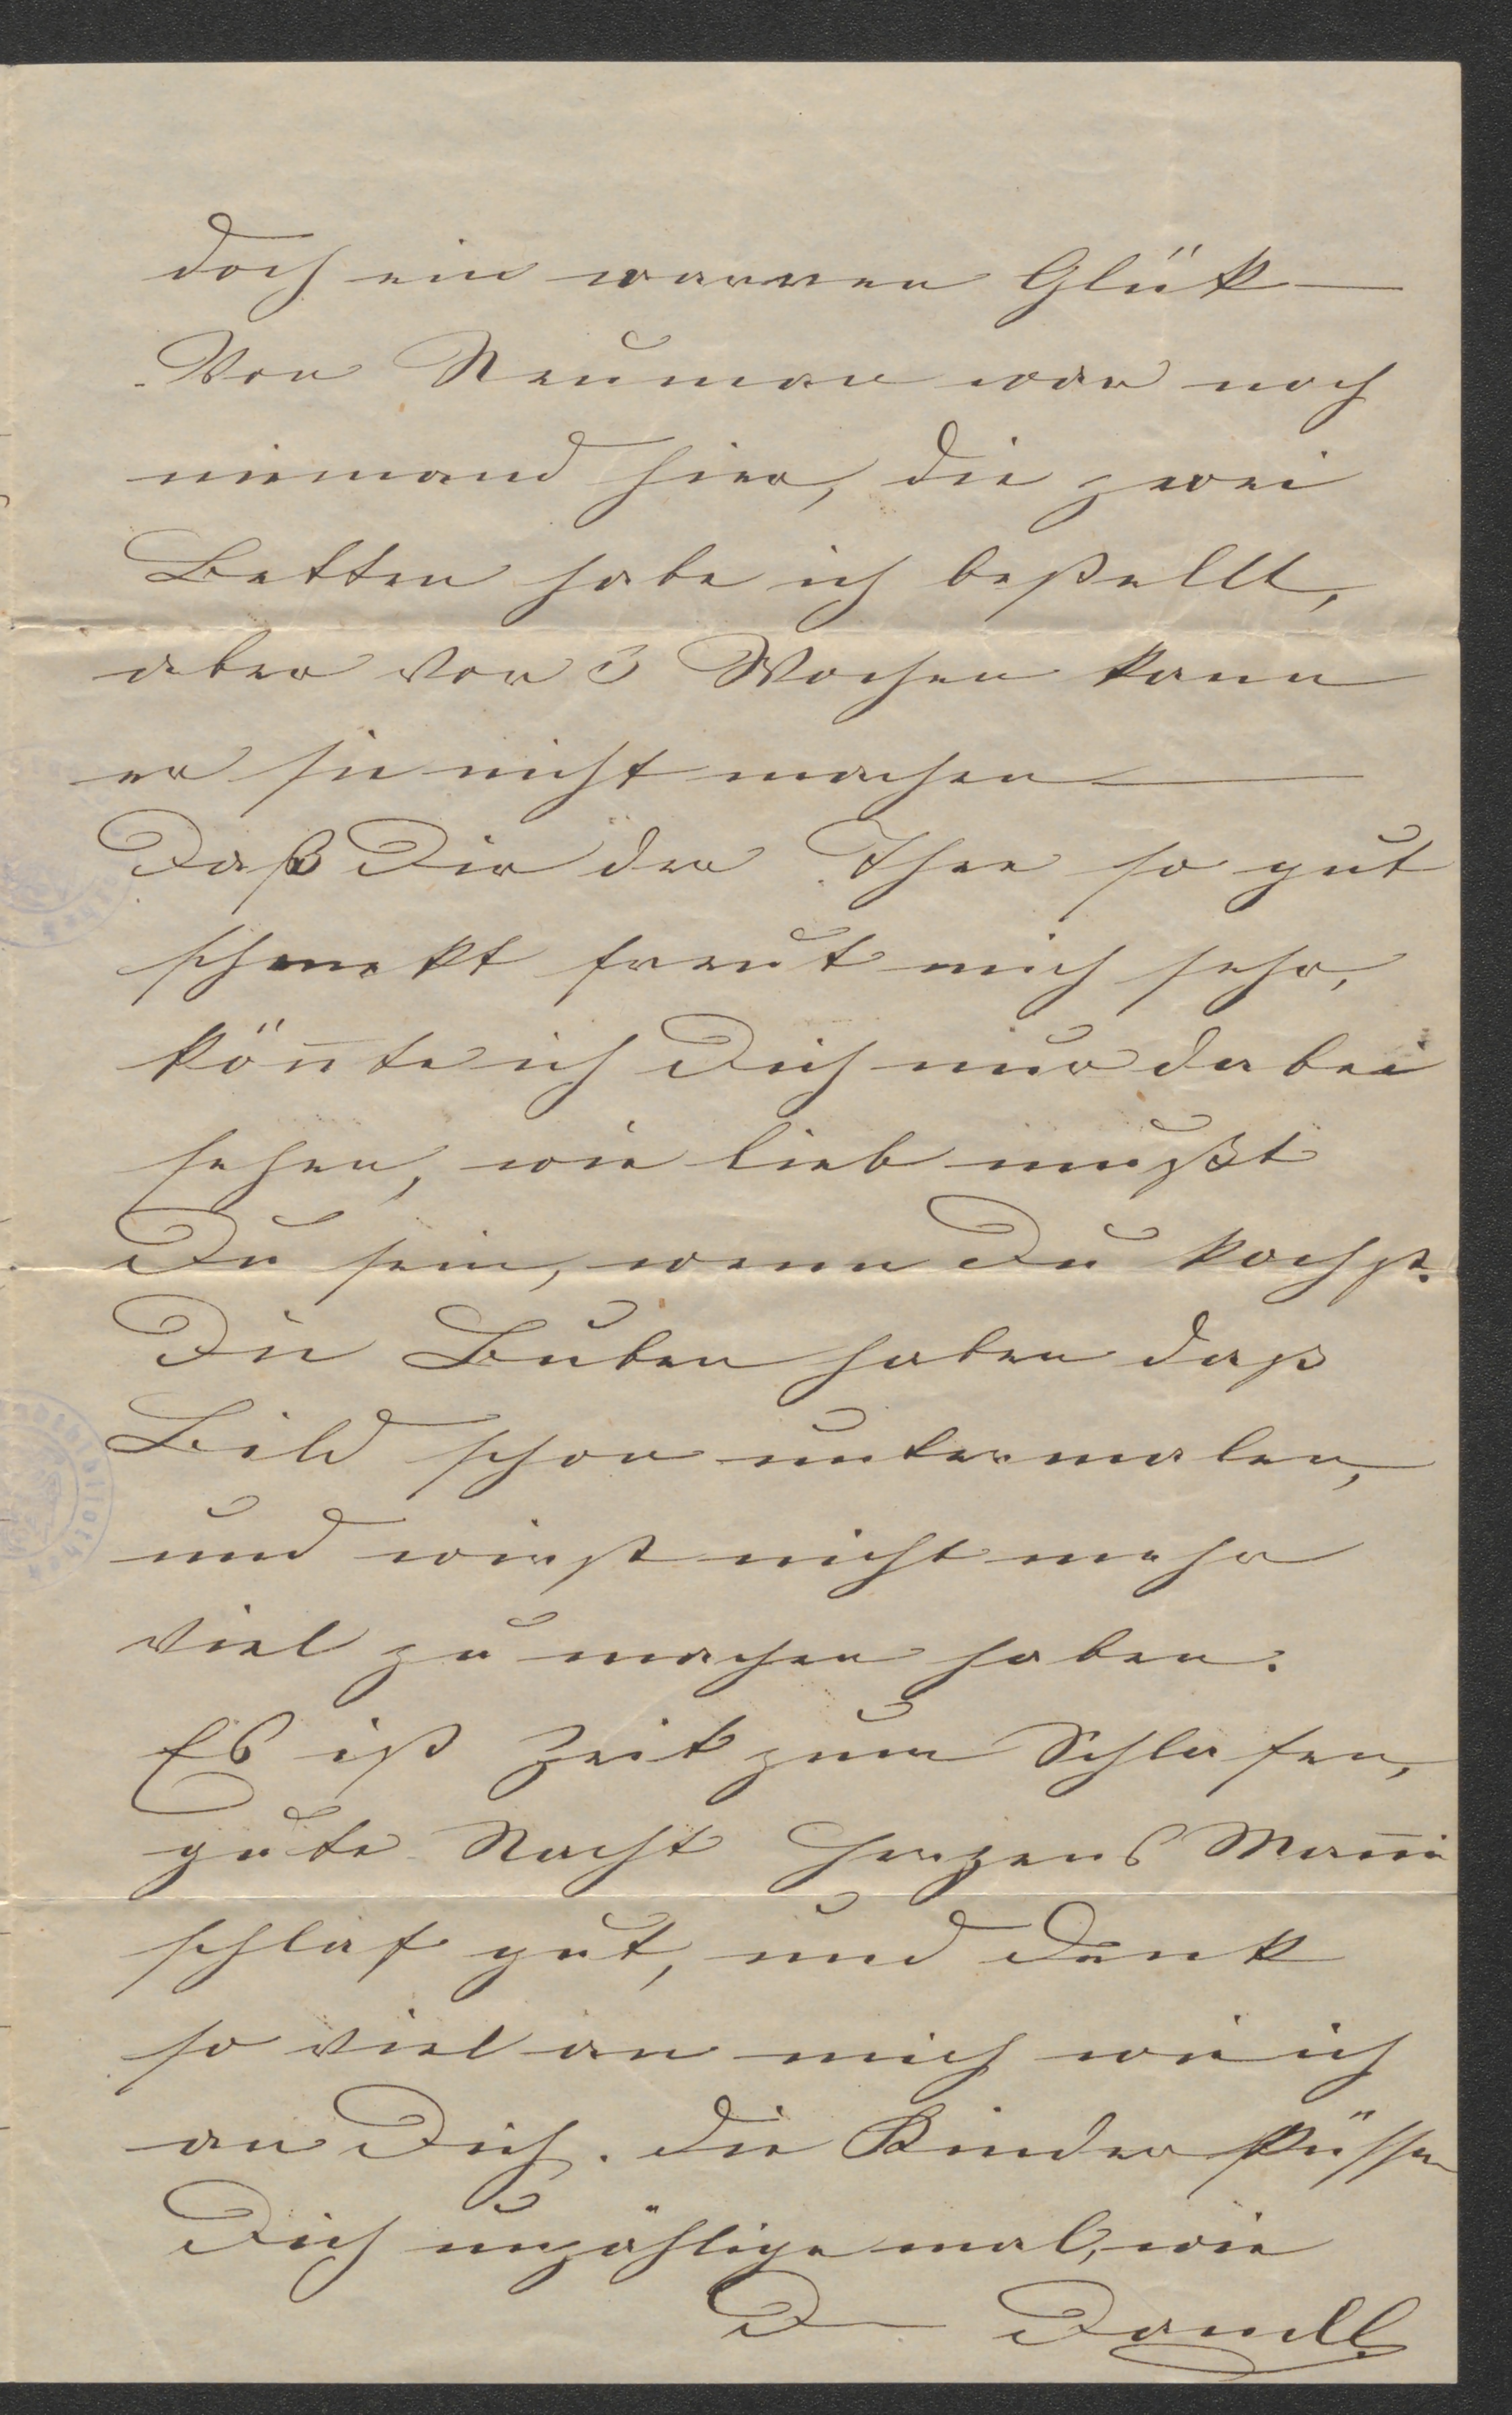 doch ein warren Glük —
Von Neuman war noch
niemand hier, die zwei
Betten habe ich bestellt,
aber vor 3 Wochen kann
er sie nicht machen —
Daß Dir der Thee so gut
schmekt freut mich sehr,
kön̅te ich Dich nur dabei
sehen, wie lieb mußt
Du sein, wenn Du kochst.
Die Buben haben daß
Bild schon untermalen,
und wirst nicht mehr
viel zu machen haben.
Es ist Zeit zum Schlafen,
gute Nacht Herzens Man̅i
schlaf gut, und denk
so viel an mich wie ich
an Dich. die Kinder küssen
Dich unzählige mal, wie
D—